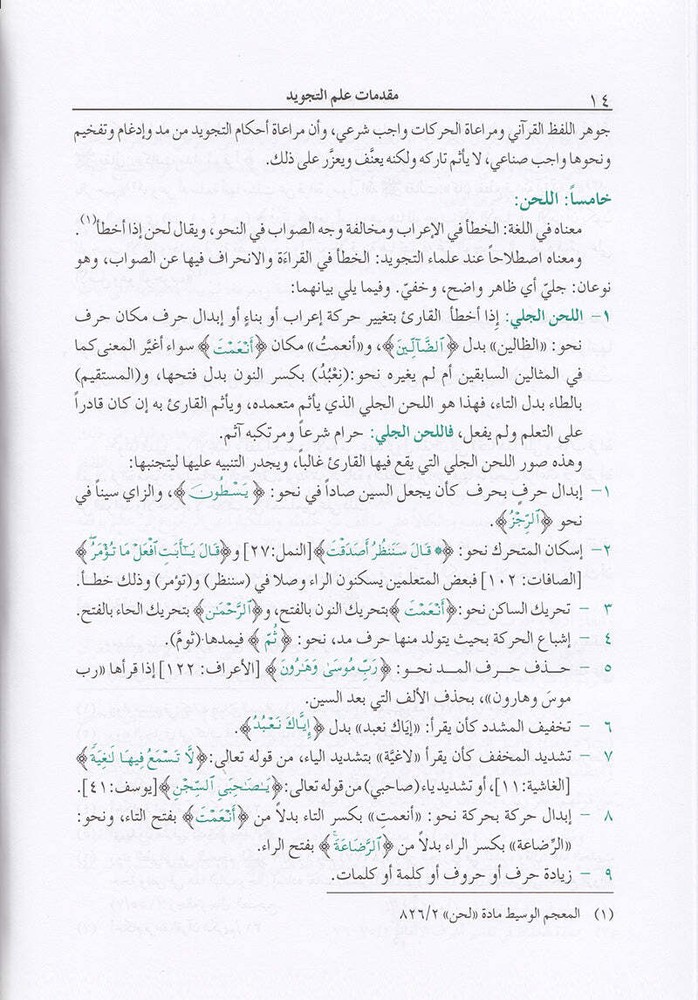 ١٤
مقدمات علم التجويد
جوهر اللفظ القرآني ومراعاة الحركات واجب شرعي، وأن مراعاة أحكام التجويد من مد وإدغام وتفخيم
ونحوها واجب صناعي، لا يأثم تاركه ولكنه يعنَّف ويعزَّر على ذلك.
خامساً: اللحن:
معناه في اللغة: الخطأ في الإعراب ومخالفة وجه الصواب في النحو، ويقال لحن إذا أخطأ(١).
ومعناه اصطلاحاً عند علماء التجويد: الخطأ في القراءة والانحراف فيها عن الصواب، وهو
نوعان: جليّ أي ظاهر واضح، وخفيّ. وفيما يلي بيانهما:
١- اللحن الجلي: إذا أخطأ القارئ بتغيير حركة إعراب أو بناءٍ أو إبدال حرف مكان حرف
نحو: «الظالين» بدل ﴿ٱلضَّآلِّينَ﴾، و«أنعمتُ» مكان ﴿أَنْعَمْتَ﴾ سواء أغيَّر المعنى كما
في المثالين السابقين أم لم يغيره نحو:(نِعْبُدُ) بكسر النون بدل فتحها، و(المسطقيم)
بالطاء بدل التاء، فهذا هو اللحن الجلي الذي يأثم متعمده، ويأثم القارئ به إن كان قادراً
على التعلم ولم يفعل، فاللحن الجلي: حرام شرعاً ومرتكبه آثم.
وهذه صور اللحن الجلي التي يقع فيها القارئ غالباً، ويجدر التنبيه عليها ليتجنبها:
١- إبدال حرفٍ بحرف كأن يجعل السين صاداً في نحو: ﴿يَسْطُونَ﴾، والزاي سيناً في
نحو ﴿ٱلرِّجْزُ﴾.
٢- إسكان المتحرك نحو: ﴿۞ قَالَ سَنَنظُرُ أَصَدَقْتَ﴾[النمل:٢٧] و﴿قَالَ يَٰٓأَبَتِ ٱفْعَلْ مَا تُؤْمَرُ﴾
[الصافات: ١٠٢] فبعض المتعلمين يسكنون الراء وصلا في (سننظر) و(تؤمر) وذلك خطـأ.
٣ - تحريك الساكن نحو:﴿أَنْعَمْتَ﴾بتحريك النون بالفتح، و﴿ٱلرَّحْمَٰنِ﴾ بتحريك الحاء بالفتح.
٤ - إشباع الحركة بحيث يتولد منها حرف مد، نحو: ﴿ثُمَّ﴾ فيمدها.(ثومَّ).
٥ - حذف حرف المد نحو: ﴿رَبِّ مُوسَىٰ وَهَٰرُونَ﴾ [الأعراف: ١٢٢] إذا قرأها «رب
موسَ وهارون»، بحذف الألف التي بعد السين.
٦ - تخفيف المشدد كأن يقرأ: «إيَاك نعبد» بدل ﴿إِيَّاكَ نَعْبُدُ﴾.
٧ - تشديد المخفف كأن يقرأ «لاغيَّة» بتشديد الياء، من قوله تعالى:﴿لَّا تَسْمَعُ فِيهَا لَٰغِيَةً﴾
[الغاشية:١١]، أو تشديد ياء (صاحبي) من قوله تعالى:﴿يَٰصَىٰحِبَيِ ٱلسِّجْنِ﴾[يوسف:٤١].
٨ - إبدال حركة بحركة نحو: «أنعمتِ» بكسر التاء بدلاً من ﴿أَنْعَمْتَ﴾ بفتح التاء، ونحو:
«الرِّضاعة» بكسر الراء بدلاً من ﴿ٱلرَّضَاعَةَ﴾ بفتح الراء.
٩ - زيادة حرف أو حروف أو كلمة أو كلمات.
(١) المعجم الوسيط مادة «لحن» ٨٢٦/٢